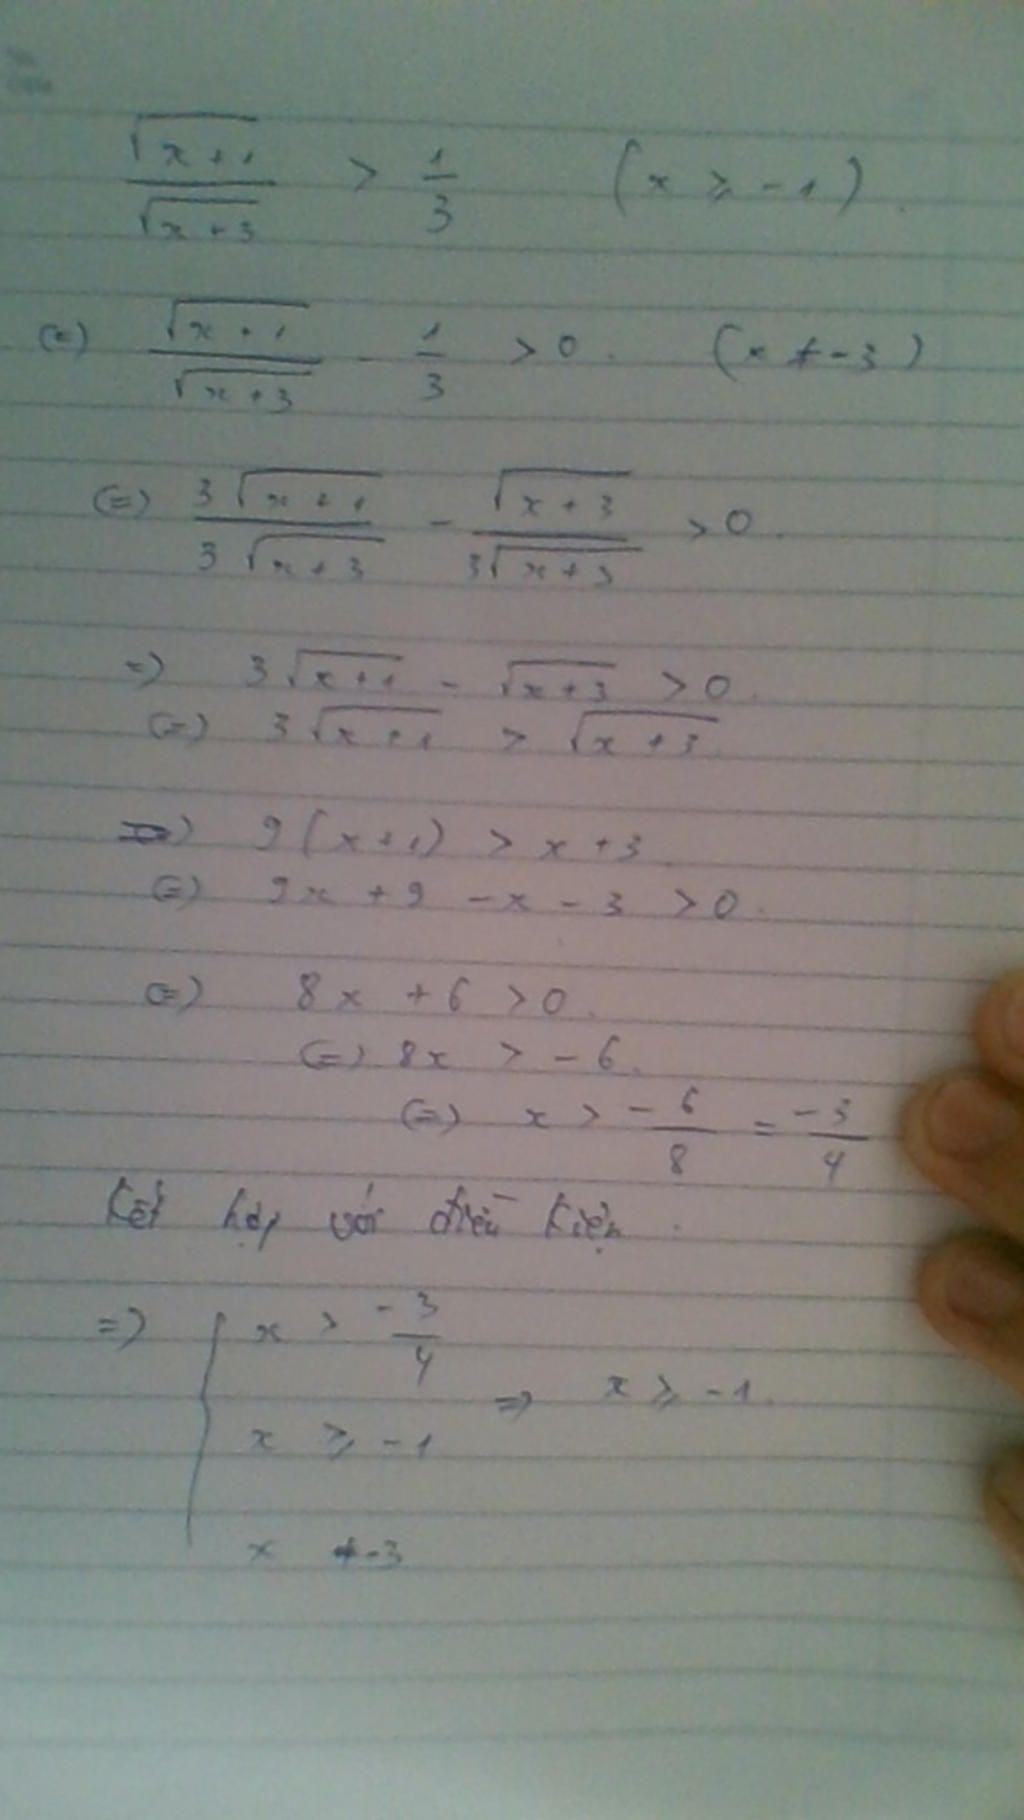 √(x+1) / √(x+3) > 1/3 (x ≥ -1).
(=) √(x+1) / √(x+3) - 1/3 > 0. (x ≠ -3)
(=) 3√(x+1) / 3√(x+3) - √(x+3) / 3√(x+3) > 0.
=) 3√(x+1) - √(x+3) > 0.
(=) 3√(x+1) > √(x+3).
=) 9(x+1) > x+3.
(=) 9x + 9 - x - 3 > 0.
(=) 8x + 6 > 0.
(=) 8x > -6.
(=) x > -6/8 = -3/4
Kết hợp với điều kiện.
=) { x > -3/4
x ≥ -1 => x ≥ -1.
x ≠ -3